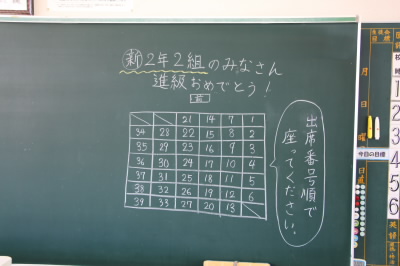 新2年2組のみなさん
進級おめでとう!
前
21 14 7 1
34 28 22 15 8 2
35 29 23 16 9 3
36 30 24 17 10 4
37 31 25 18 11 5
38 32 26 19 12 6
39 33 27 20 13
出席番号順で
座ってください。
月
日
曜
日
今日の目標
1
2
3
4
5
6